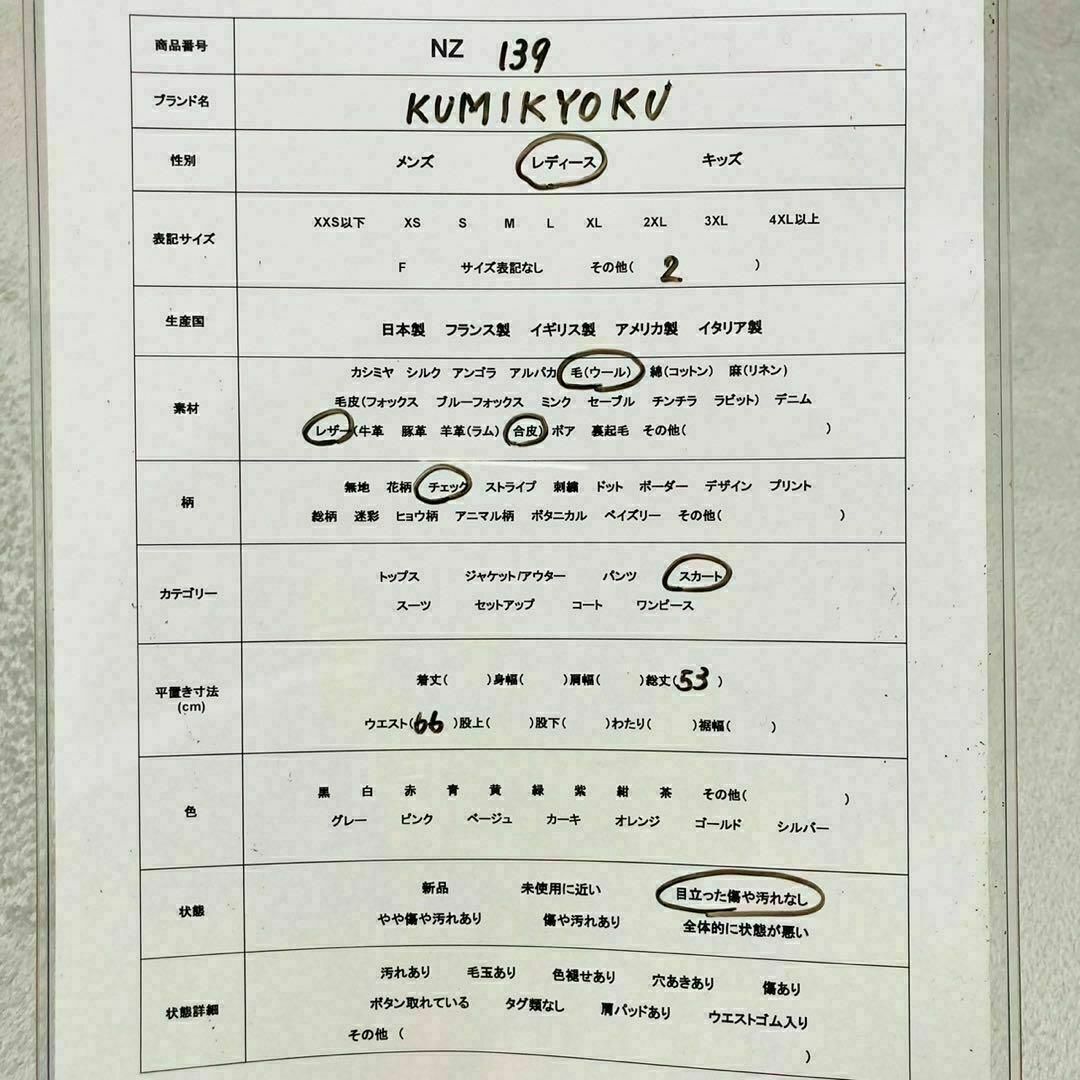 商品番号 NZ 139
ブランド名 KUMIKYOKU
性別 メンズ レディース キッズ
表記サイズ
XXS以下 XS S M L XL 2XL 3XL 4XL以上
F サイズ表記なし その他( 2 )
生産国 日本製 フランス製 イギリス製 アメリカ製 イタリア製
素材
カシミヤ シルク アンゴラ アルパカ 毛(ウール) 綿(コットン) 麻(リネン)
毛皮(フォックス ブルーフォックス ミンク セーブル チンチラ ラビット) デニム
レザー(牛革 豚革 羊革(ラム) 合皮) ボア 裏起毛 その他( )
柄
無地 花柄 チェック ストライプ 刺繍 ドット ボーダー デザイン プリント
総柄 迷彩 ヒョウ柄 アニマル柄 ボタニカル ペイズリー その他( )
カテゴリー
トップス ジャケット/アウター パンツ スカート
スーツ セットアップ コート ワンピース
平置き寸法
(cm)
着丈( )身幅( )肩幅( )総丈(53 )
ウエスト(66 )股上( )股下( )わたり( )裾幅( )
色
黒 白 赤 青 黄 緑 紫 紺 茶 その他( )
グレー ピンク ベージュ カーキ オレンジ ゴールド シルバー
状態
新品 未使用に近い 目立った傷や汚れなし
やや傷や汚れあり 傷や汚れあり 全体的に状態が悪い
状態詳細
汚れあり 毛玉あり 色褪せあり 穴あきあり 傷あり
ボタン取れている タグ類なし 肩パッドあり ウエストゴム入り
その他 ( )